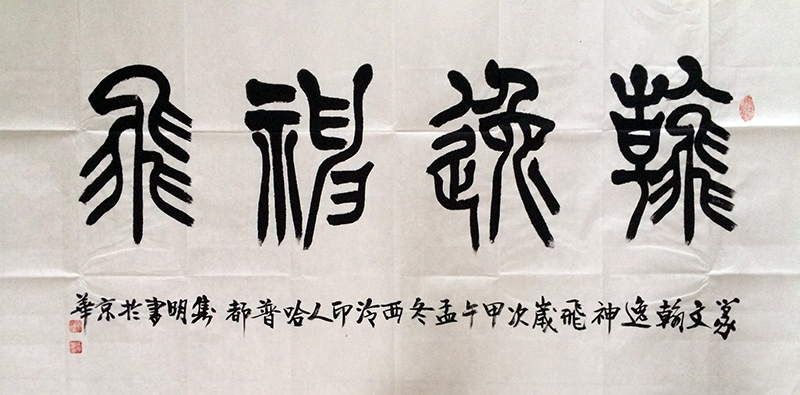 翰逸神飛
篆文翰逸神飛歲次甲午孟冬西泠印人哈普都隽明書於京華